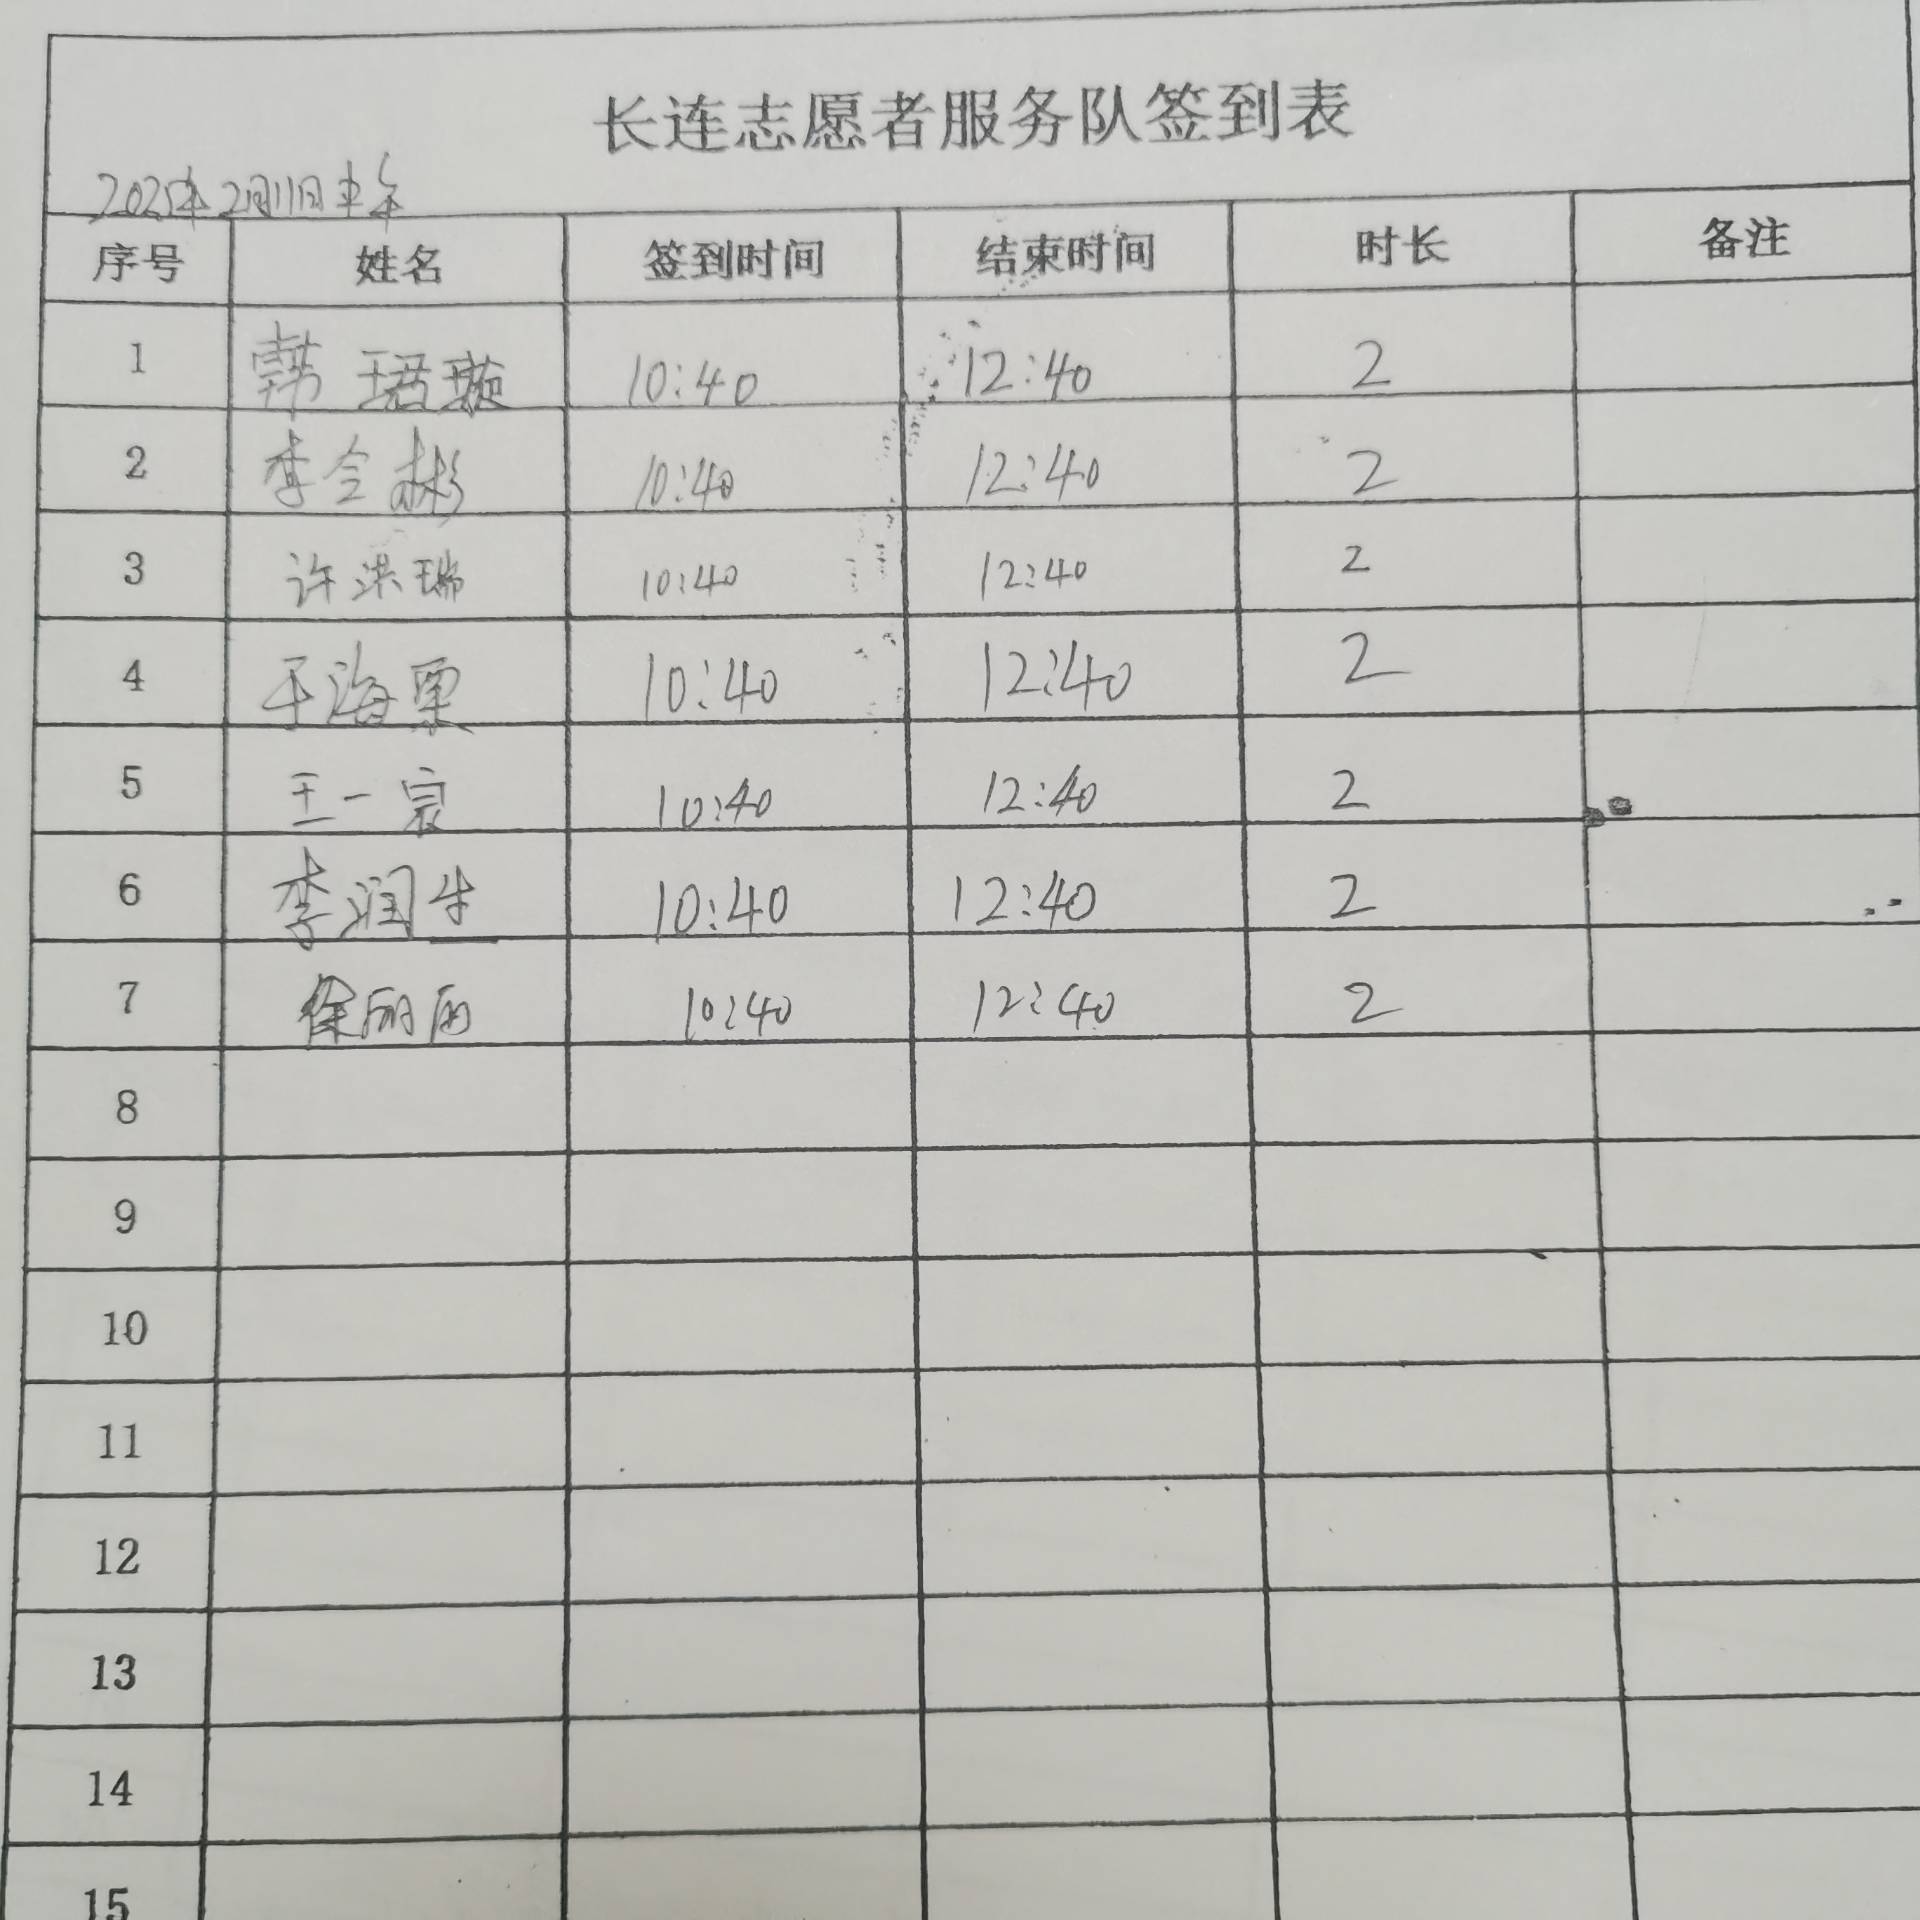 长连志愿者服务队签到表
2021年2月11日
序号 姓名 签到时间 结束时间 时长 备注
1 韩珺璇 10:40 12:40 2
2 李令彬 10:40 12:40 2
3 许洪瑞 10:40 12:40 2
4 于海粟 10:40 12:40 2
5 王一宸 10:40 12:40 2
6 李润生 10:40 12:40 2
7 徐丽丽 10:40 12:40 2
8
9
10
11
12
13
14
15